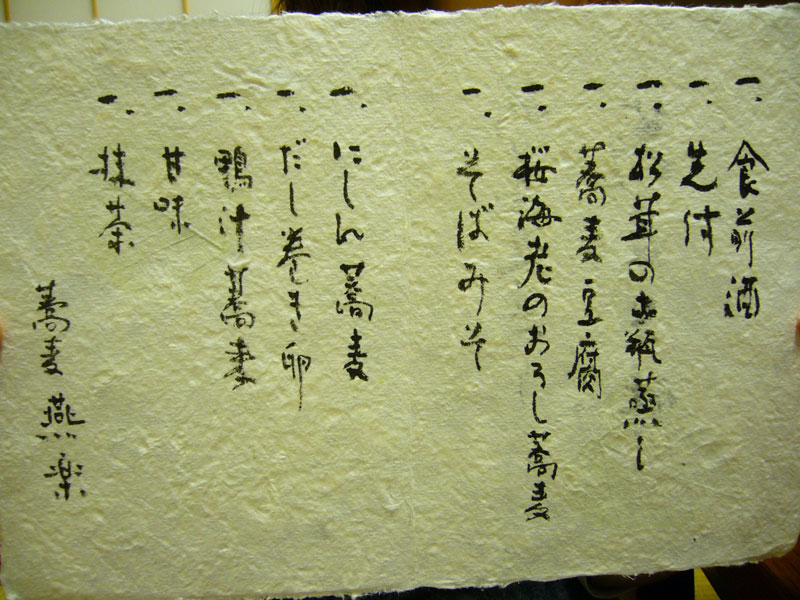 一、食前酒
一、先付
一、松茸の土瓶蒸し
一、蕎麦豆腐
一、桜海老のおろし蕎麦
一、そばみそ
一、にしん蕎麦
一、だし巻き卵
一、鴨汁蕎麦
一、甘味
一、抹茶
蕎麦 燕楽